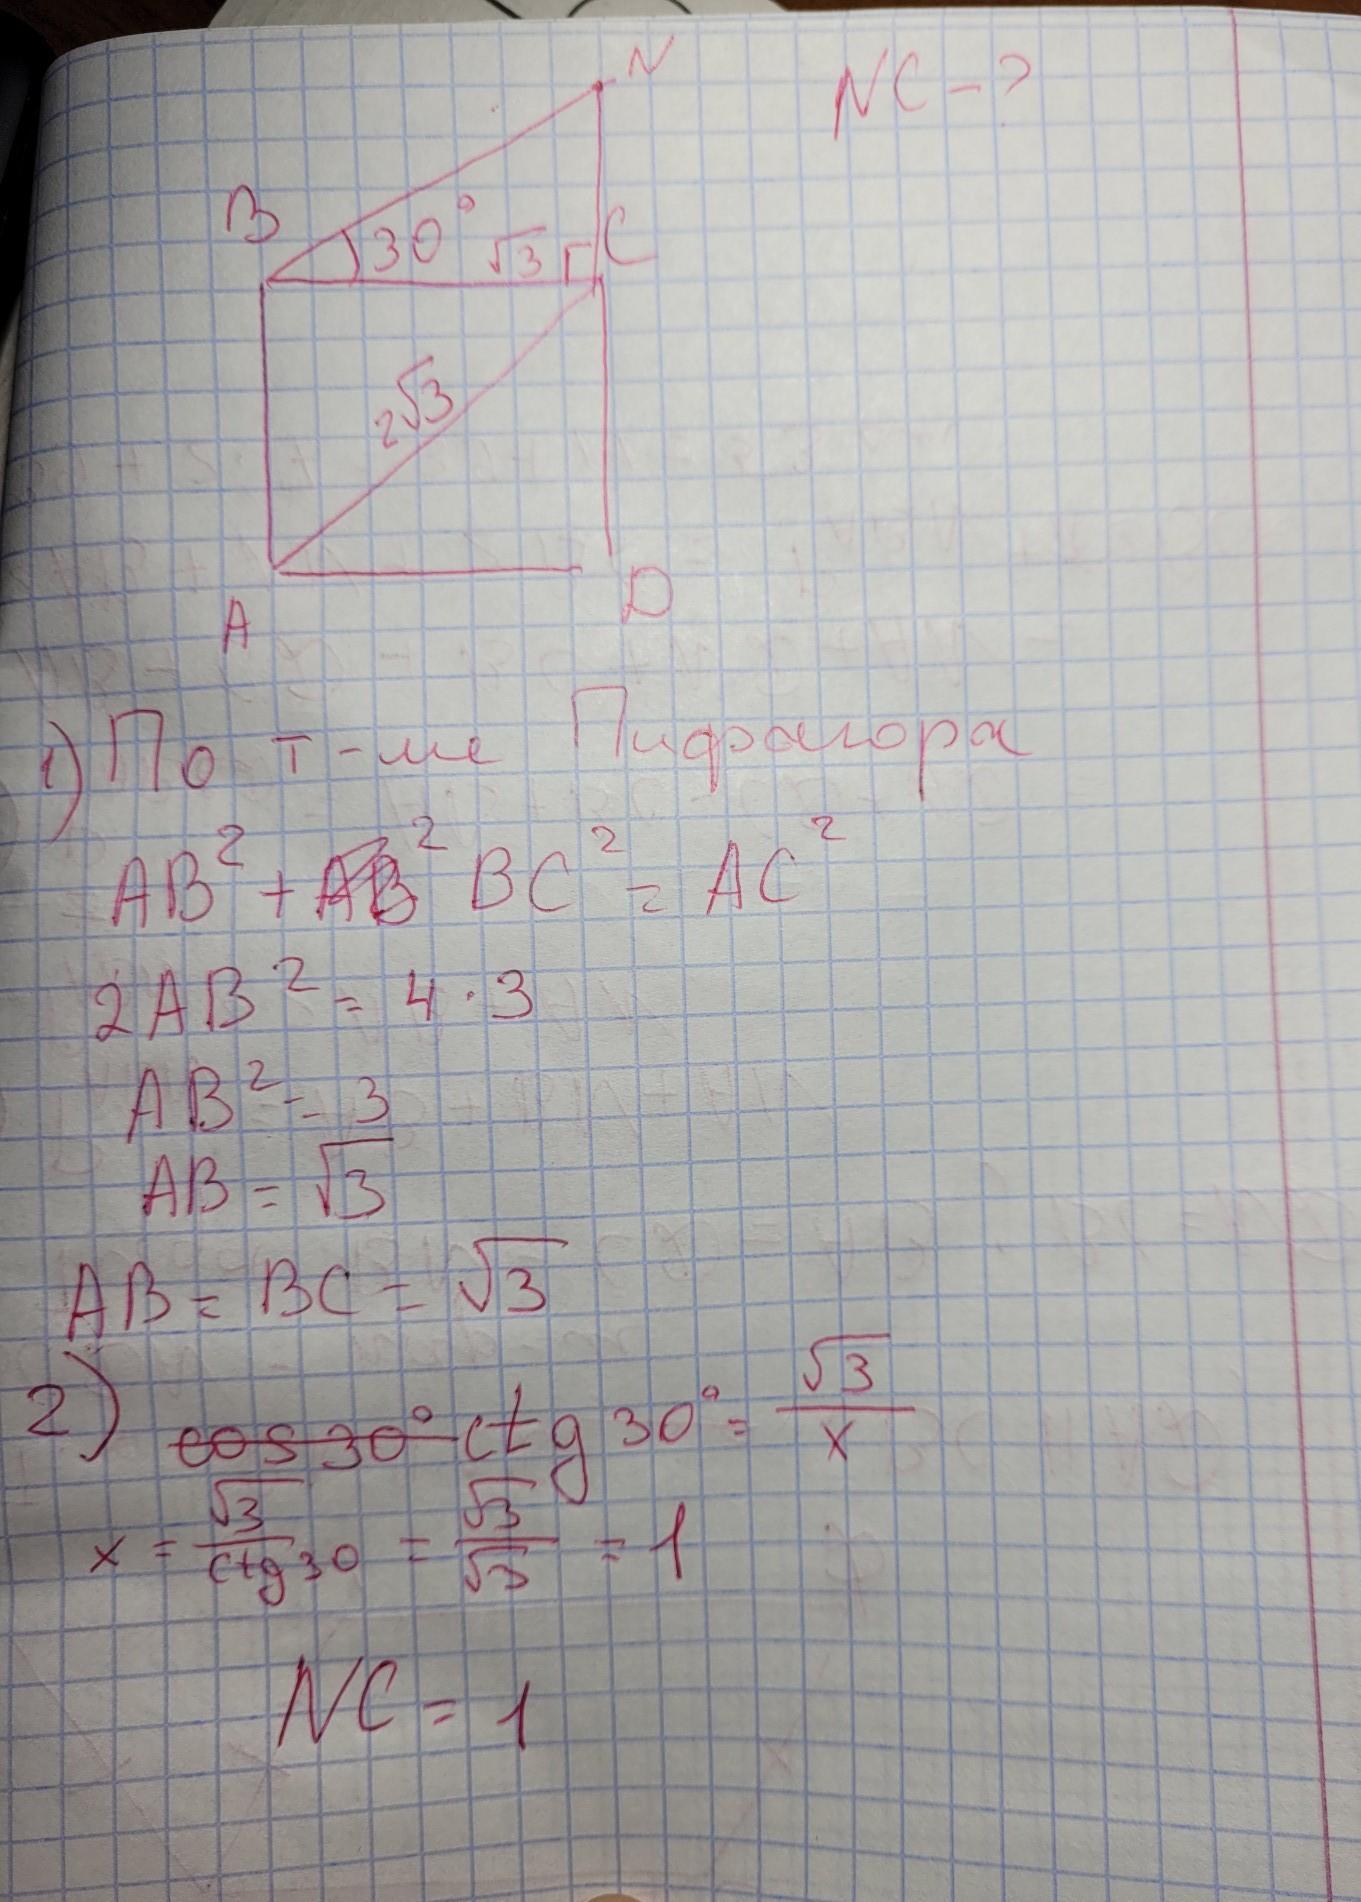 N
NC - ?
B
30°
√3
C
2√3
A
D
1) По т-ме Пифрагора
AB² + AB² BC² = AC²
2AB² = 4 · 3
AB² = 3
AB = √3
AB = BC = √3
2) cos 30° ctg 30° = √3/x
x = √3/ctg30 = √3/√3 = 1
NC = 1